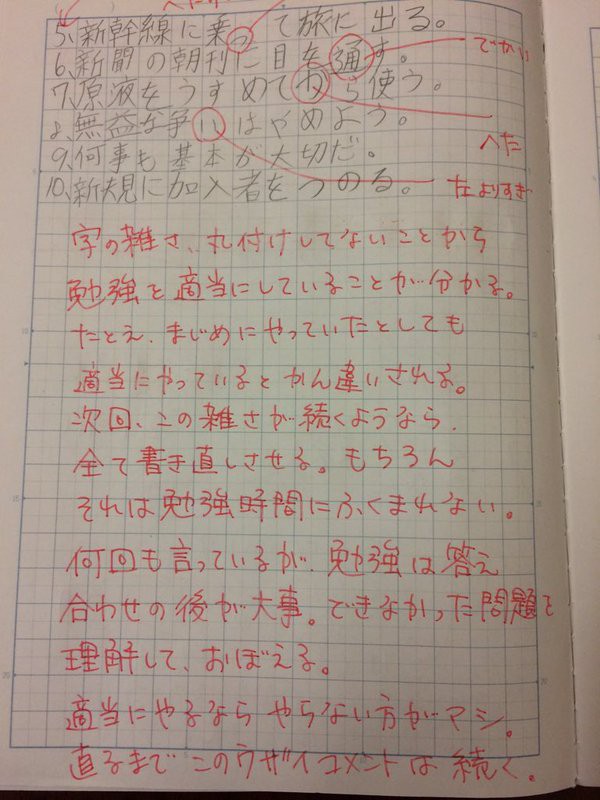 5、新幹線に乗って旅に出る。
6、新聞の朝刊に目を通す。
でかい
7、原液をうすめてから使う。
8、無益な争いはやめよう。
へた
9、何事も基本が大切だ。
10、新規に加入者をつのる。
左よりすぎ
字の雑さ、丸付けしてないことから
勉強を適当にしていることが分かる。
たとえ、まじめにやっていたとしても
適当にやっているとかん違いされる。
次回、この雑さが続くようなら、
全て書き直しさせる。もちろん
それは勉強時間にふくまれない。
何回も言っているが、勉強は答え
合わせの後が大事。できなかった問題を
理解して、おぼえる。
適当にやるならやらない方がマシ。
直るまでこのウザイコメントは続く。